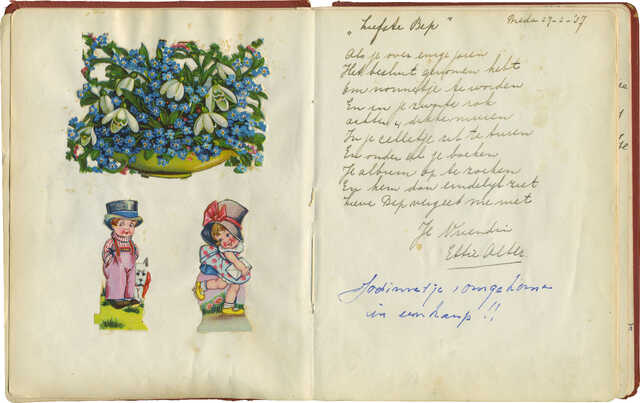 "Liefste Bep"
27-2-'37
Als je over enige jaren
Het besluit genomen hebt
Om nonnetje te worden
En in je zwarte rok
achter 4 dikke muren
In je celletje zit te turen
En onder al je boeken
Je album op te zoeken
En hem dan eindelijk ziet
Lieve Bep vergeet me niet
Je Vriendin
Jodinnetje omgekomen
in een kamp!!